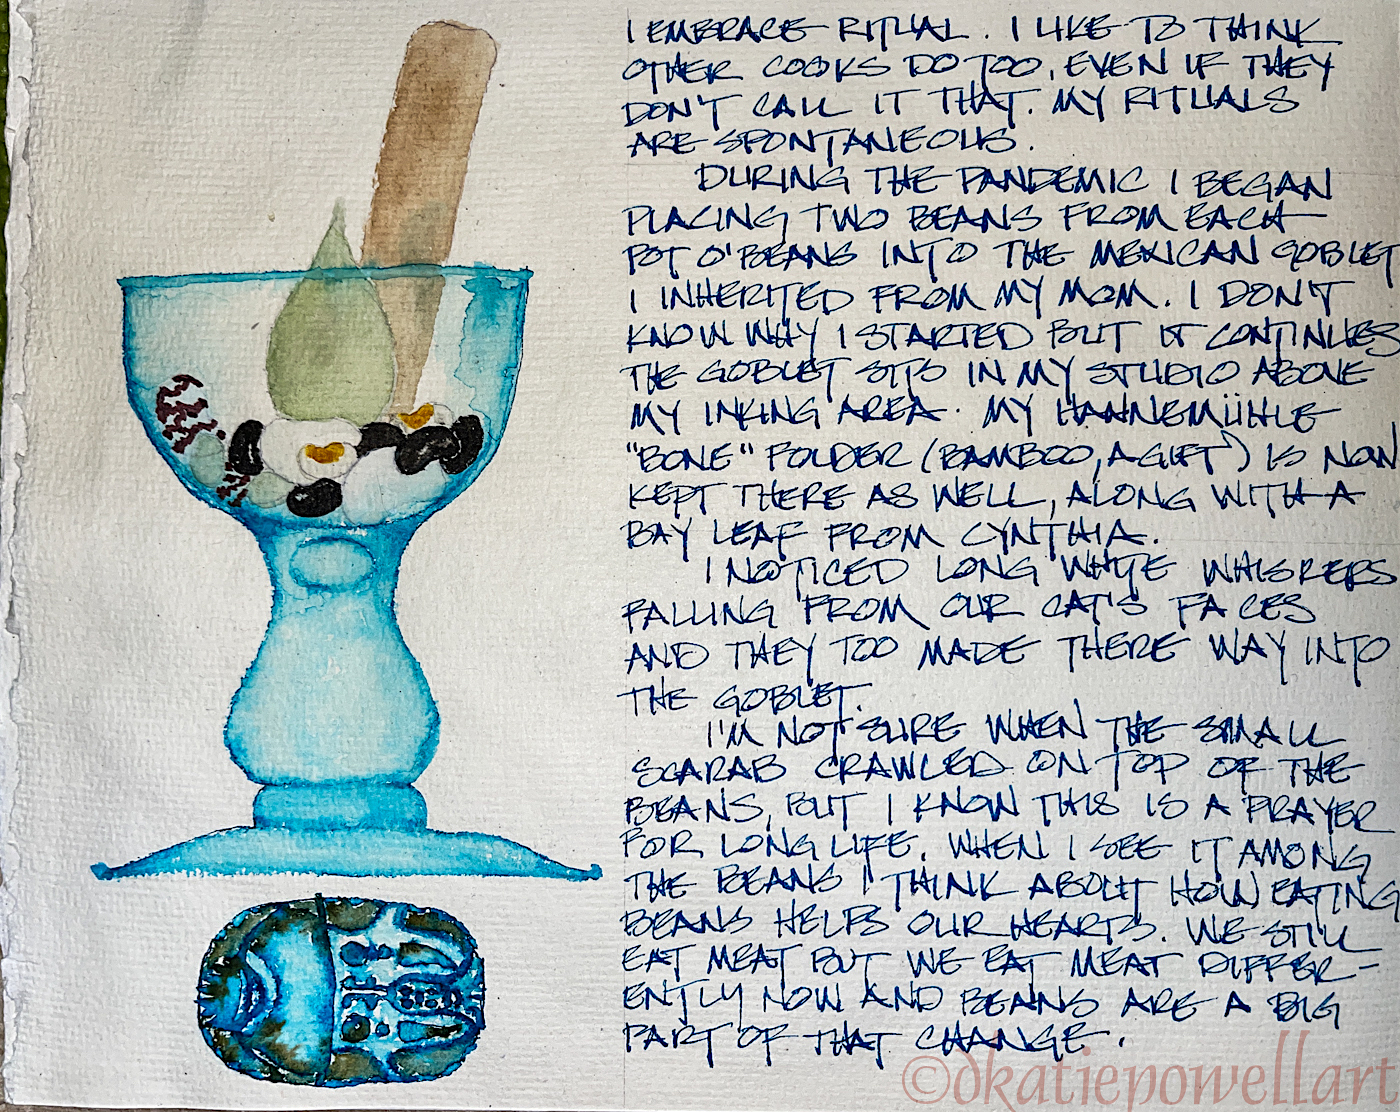 I EMBRACE RITUAL. I LIKE TO THINK
OTHER COOKS DO TOO, EVEN IF THEY
DON'T CALL IT THAT. MY RITUALS
ARE SPONTANEOUS.
DURING THE PANDEMIC I BEGAN
PLACING TWO BEANS FROM EACH
POT O'BEANS INTO THE MEXICAN GOBLET
I INHERITED FROM MY MOM. I DON'T
KNOW WHY I STARTED BUT IT CONTINUES
THE GOBLET SITS IN MY STUDIO ABOVE
MY INKING AREA. MY HAHNEMÜHLE
"BONE" FOLDER (BAMBOO, A GIFT) IS NOW
KEPT THERE AS WELL, ALONG WITH A
BAY LEAF FROM CYNTHIA.
I NOTICED LONG WHITE WHISKERS
FALLING FROM OUR CAT'S FACES
AND THEY TOO MADE THERE WAY INTO
THE GOBLET.
I'M NOT SURE WHEN THE SMALL
SCARAB CRAWLED ON TOP OF THE
BEANS, BUT I KNOW THIS IS A PRAYER
FOR LONG LIFE. WHEN I SEE IT AMONG
THE BEANS I THINK ABOUT HOW EATING
BEANS HELPS OUR HEARTS. WE STILL
EAT MEAT BUT WE EAT MEAT DIFFER-
ENTLY NOW AND BEANS ARE A BIG
PART OF THAT CHANGE.
©dkatiepowellart